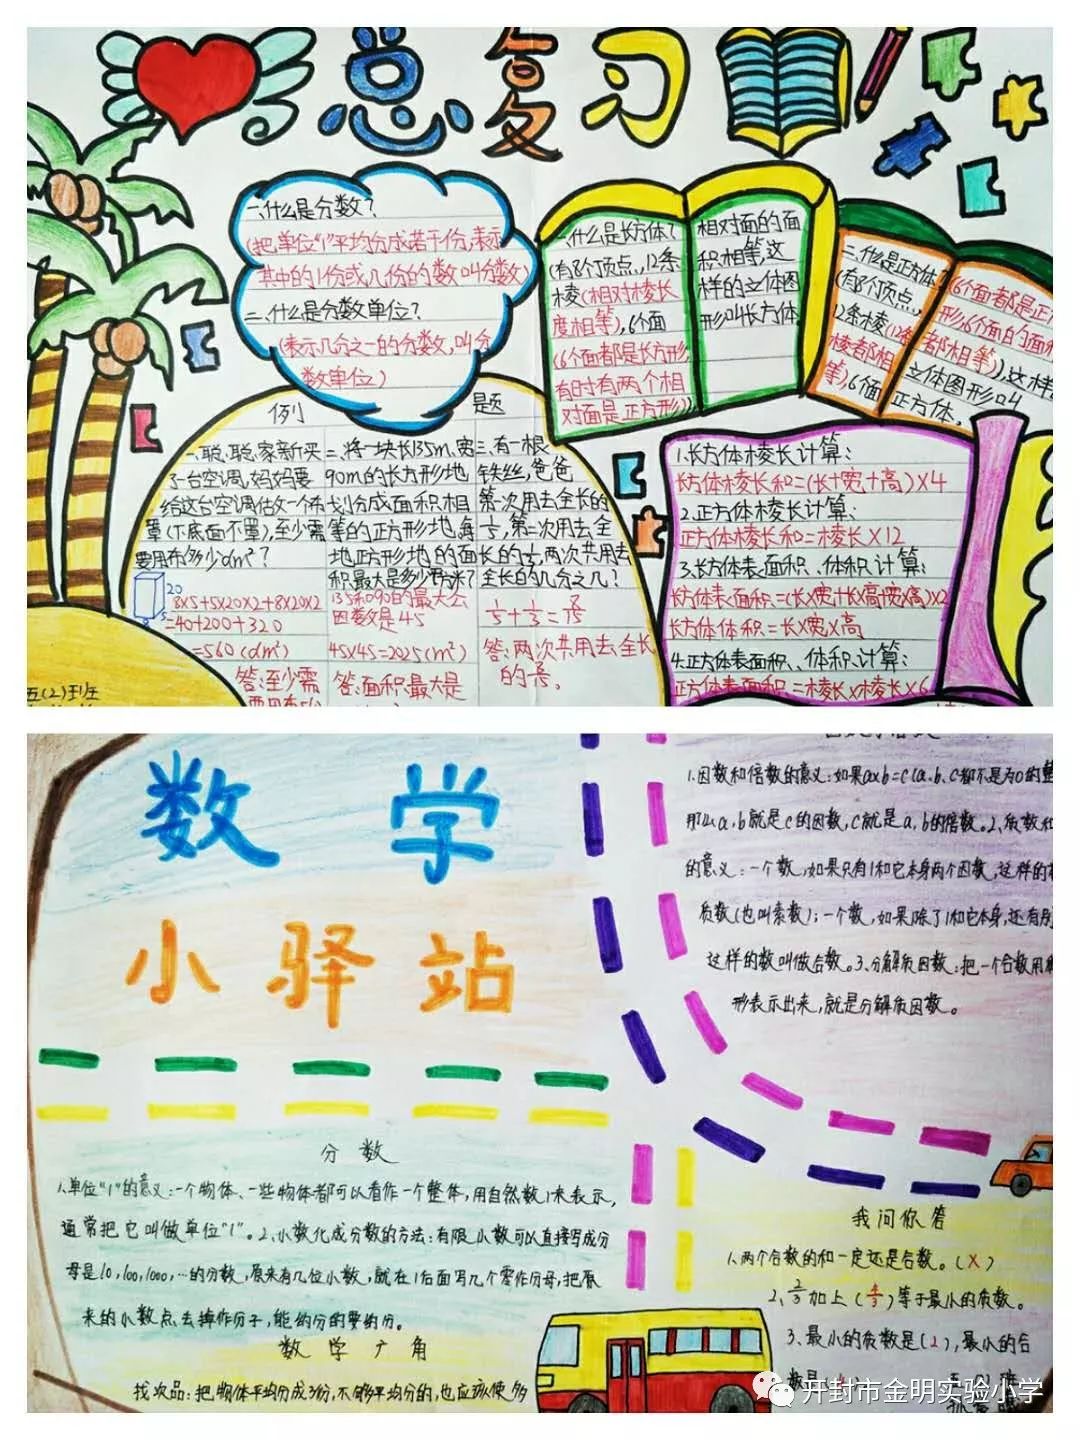 总复习
一、什么是分数?
(把单位“1”平均分成若干份,表示
其中的1份或几份的数叫分数)
二、什么是分数单位?
(表示几分之一的分数,叫分
数单位)
一、什么是长方体?
(有8个顶点,,12条
棱(相对棱长
度相等),6个面
(6个面都是长方形,
有时有两个相
对面是正方形))
相对面的面
积相等,这
样的立体图
形叫长方体
二、什么是正方体?
(有8个顶点,
12条棱(12条
棱都相
等),6个面
(6个面都是正
形,6个面的面积
都相等)),这样
立体图形叫
正方体。
例 题
一、聪聪家新买
了一台空调,妈妈要
给这台空调做一个布
罩(下底面不罩),至少需
要用布多少dm²?
20
5
8
8×5+5×20×2+8×20×2
=40+200+320
=560(dm²)
答:至少需
二、将一块长135m,宽
90m的长方形地
划分成面积相
等的正方形地,每
地正方形地的面
积最大是多少平方米?
135和90的最大公
因数是45
45×45=2025(m²)
答:面积最大是
三、有一根
铁丝,爸爸
第一次用去全长的
1/5,第二次用去全
长的1/3,两次共用去
全长的几分之几?
1/5+1/3=8/15
答:两次共用去全长
1.长方体棱长计算:
长方体棱长和=(长+宽+高)×4
2.正方体棱长计算:
正方体棱长和=棱长×12
3.长方体表面积、体积计算:
长方体表面积=(长×宽+长×高+宽×高)×2
长方体体积=长×宽×高
4.正方体表面积、体积计算:
正方体表面积=棱长×棱长×6
五(2)班
数学
小驿站
1.因数和倍数的意义:如果a×b=c(a、b、c都不是为0的整
那么a、b就是c的因数,c就是a、b的倍数。2、质数和
的意义:一个数,如果只有1和它本身两个因数,这样的
质数(也叫素数);一个数,如果除了1和它本身,还有别
这样的数叫做合数。3、分解质因数:把一个合数用
形表示出来,就是分解质因数。
分数
1、单位“1”的意义:一个物体、一些物体都可以看作一个整体,用自然数1来表示,
通常把它叫做单位“1”。2、小数化成分数的方法:有限小数可以直接写成分
母是10,100,1000,…的分数,原来有几位小数,就在1后面写几个零作分母,把原
来的小数点去掉作分子,能约分的要约分。
数学广角
找次品:把物体平均分成3份,不够平均分的,也应该使多
我问你答
1、两个合数的和一定还是合数。(×)
2、2/3加上(4/3)等于最小的质数。
3、最小的质数是(2),最小的合
数是(
开封市金明实验小学